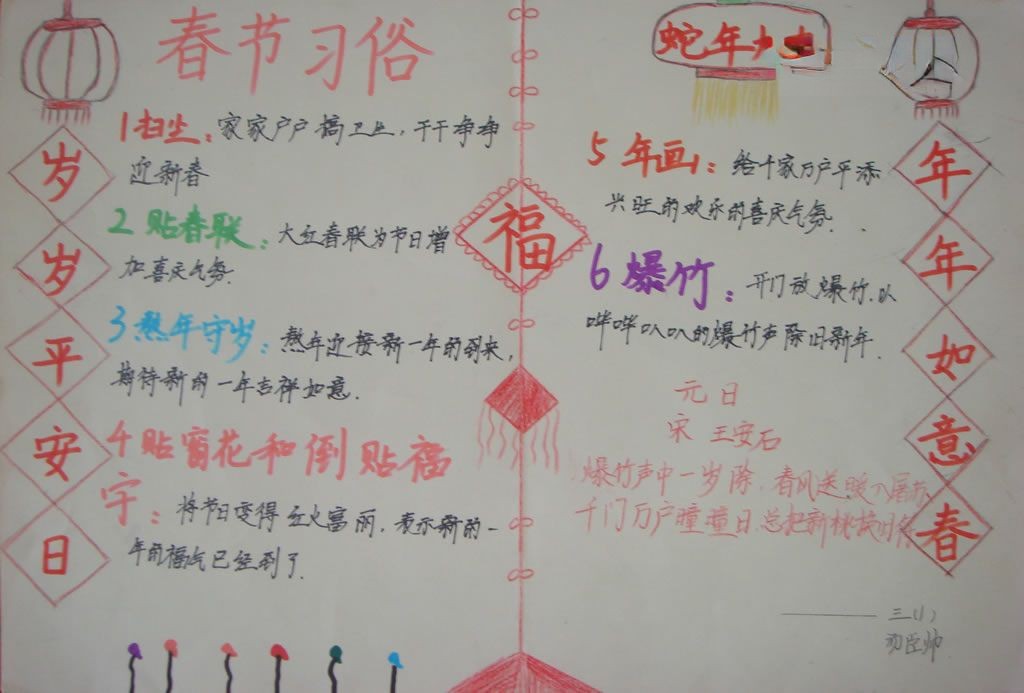 春节习俗
1扫尘：家家户户搞卫生，干干净净
迎新春
2贴春联：大红春联为节日增
加喜庆气氛.
3熬年守岁：熬年迎接新一年的到来，
期待新的一年吉祥如意.
4贴窗花和倒贴福
字：将节日变得红火富丽，表示新的一
年的福气已经到了.
岁
岁
平
安
日
福
蛇年
5年画：给千家万户平添
兴旺的欢乐的喜庆气氛.
6爆竹：开门放爆竹.以
哔哔叭叭的爆竹声除旧新年.
元日
宋 王安石
爆竹声中一岁除.春风送暖入屠苏
千门万户曈曈日.总把新桃换旧符
年
年
如
意
春
三(1)